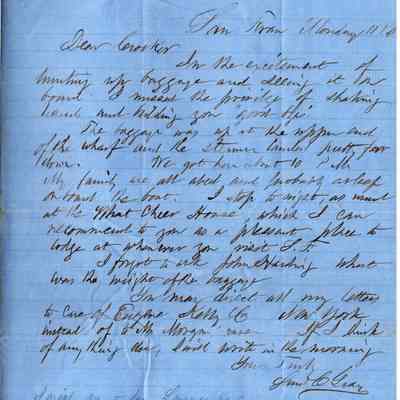 San Fran Monday
Dear Crocker
In the excitement of
hunting up baggage and seeing it on
board I missed the privilege of shaking
hand and bidding you good bye.
The baggage was up at the upper end
of the wharf and the steamer landed pretty far
down. We got here about 10 P.M.
My family are all abed and probably asleep
on board the boat. I stop to night, as usual
at the What Cheer House, which I can
recommend to you as a pleasant place to
lodge at whenever you visit S. F.
I forgot to ask John Harding what
was the weight of the baggage
You may direct all my letters
to care of Eugene Kelly & Co New York
instead of to Mr Morgan care If I think
of any thing else, I will write in the morning
Yours Truly